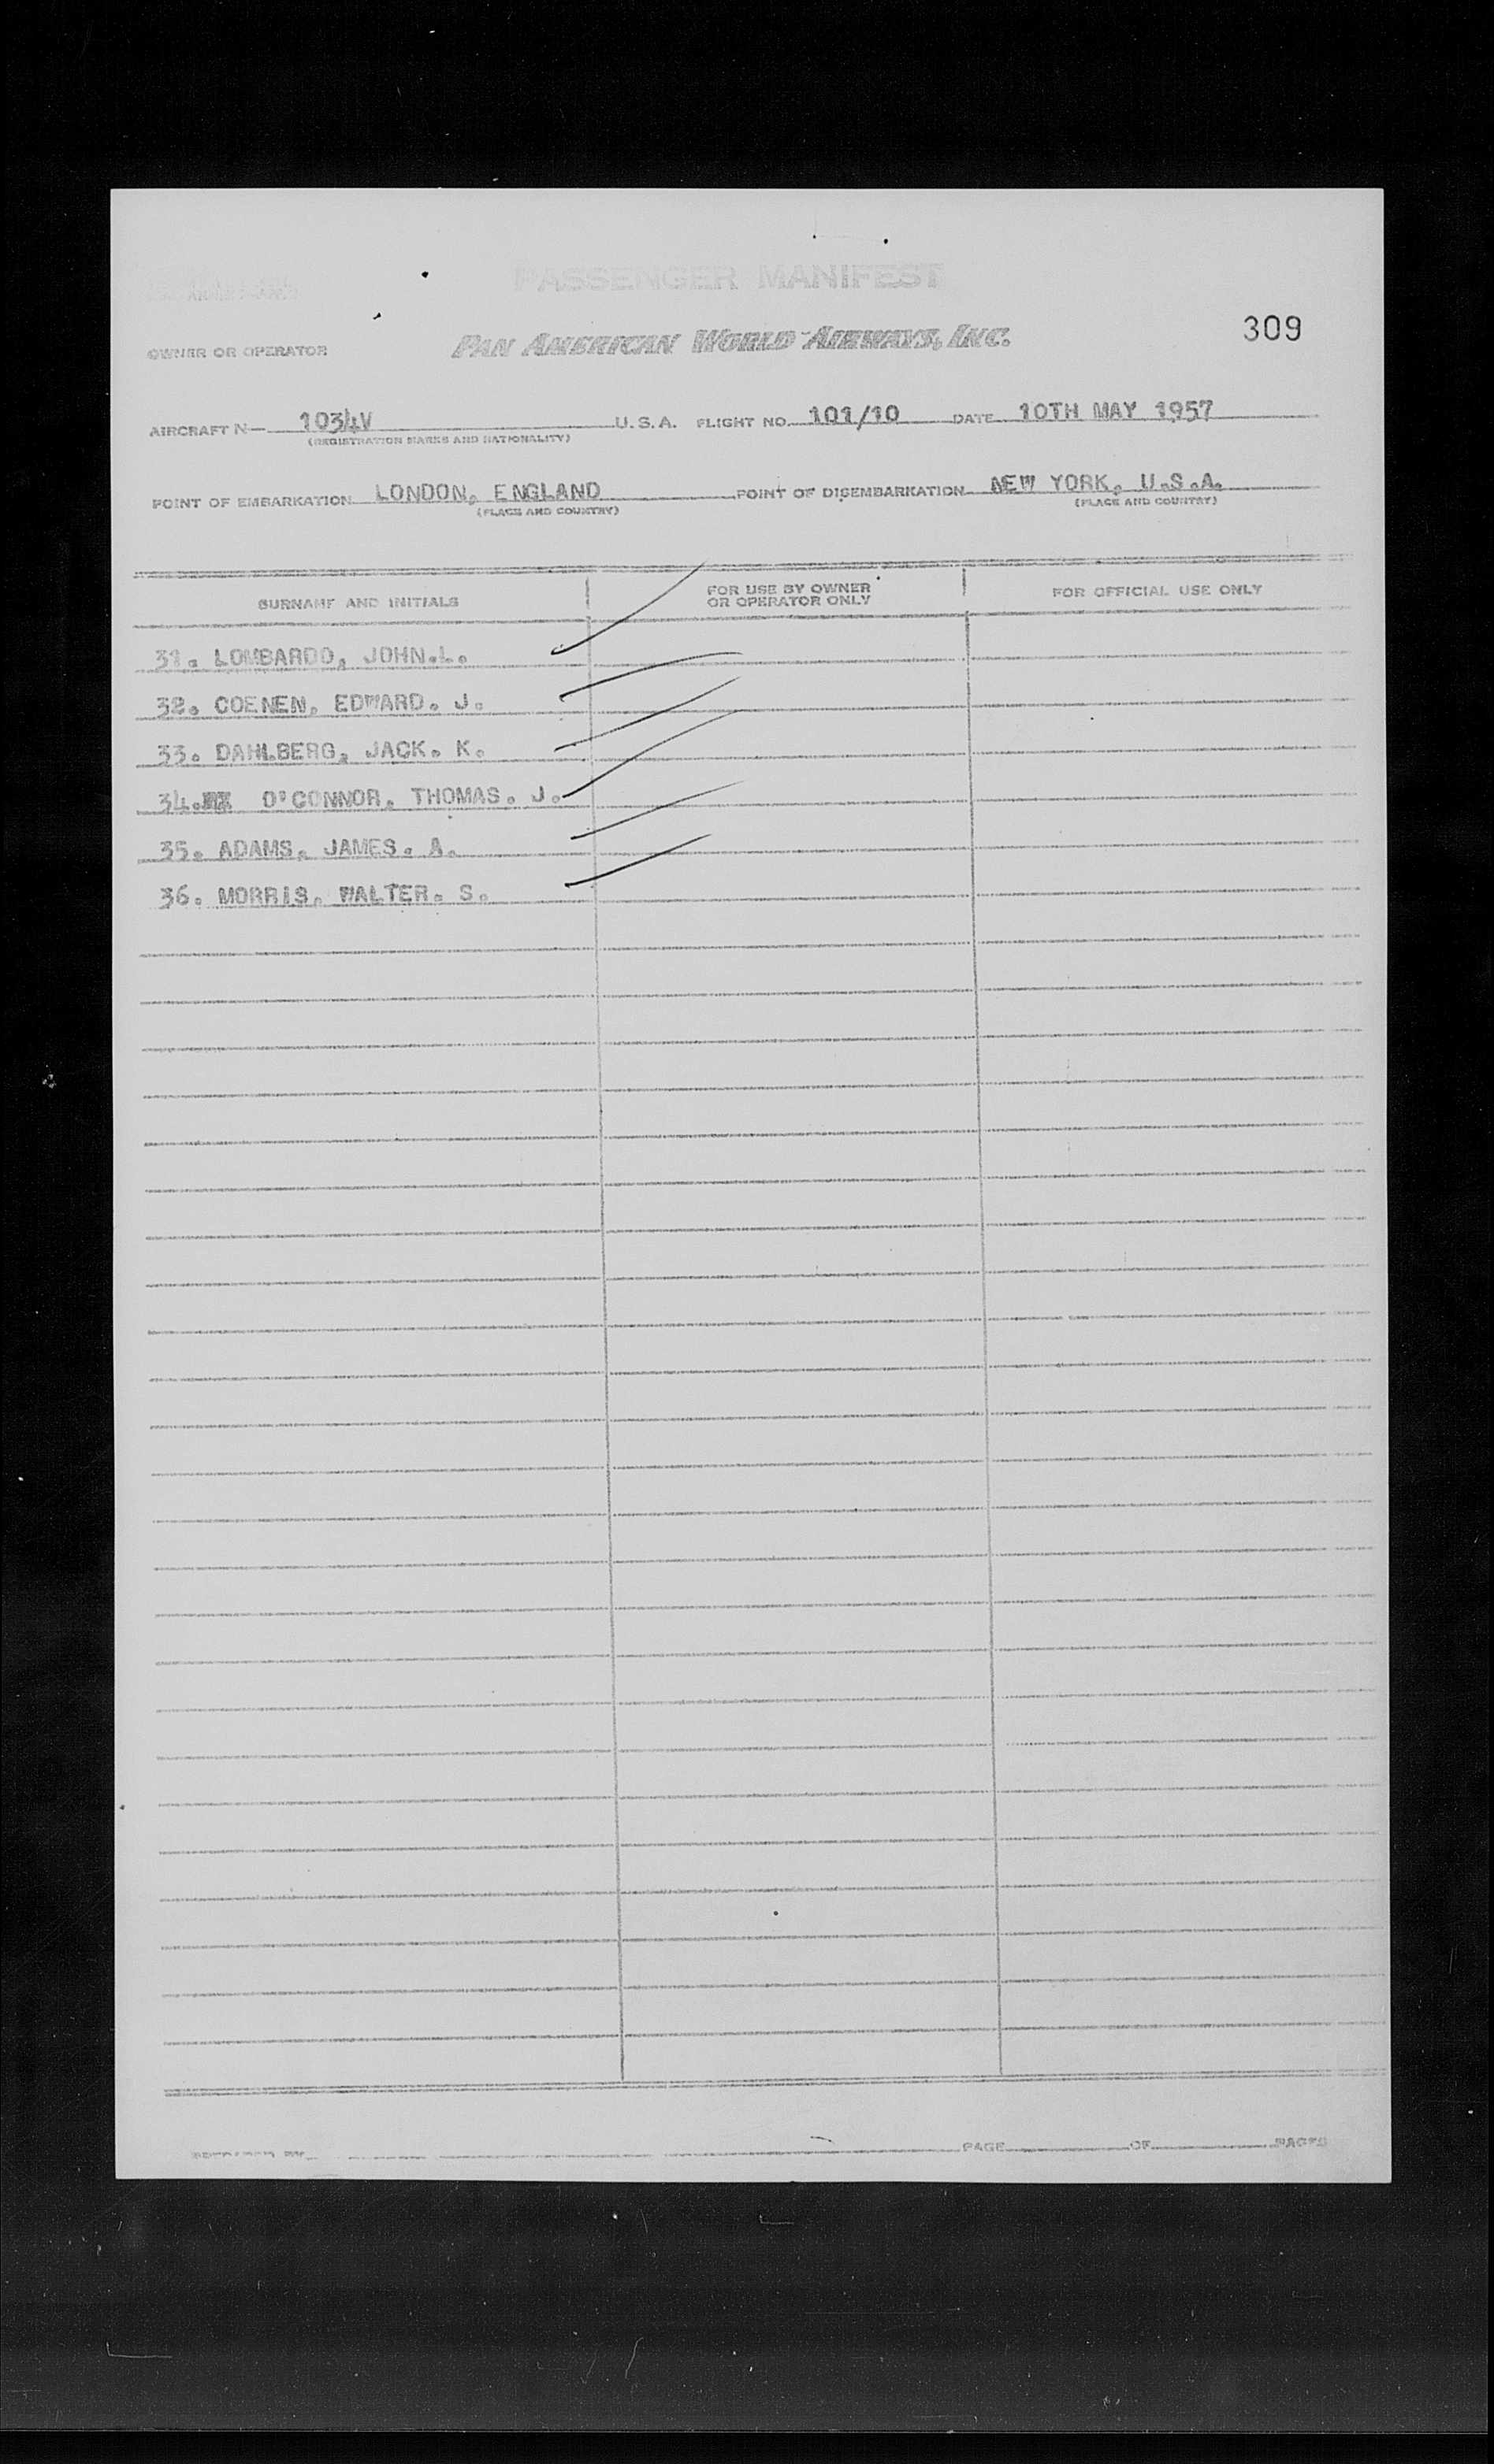 PASSENGER MANIFEST
309
OWNER OR OPERATOR PAN AMERICAN WORLD AIRWAYS, INC.
AIRCRAFT N— 1034V U.S.A. FLIGHT NO. 101/10 DATE 10TH MAY 1957
(REGISTRATION MARKS AND NATIONALITY)
POINT OF EMBARKATION LONDON, ENGLAND POINT OF DISEMBARKATION NEW YORK, U.S.A.
(PLACE AND COUNTRY) (PLACE AND COUNTRY)
SURNAME AND INITIALS FOR USE BY OWNER OR OPERATOR ONLY FOR OFFICIAL USE ONLY
31. LOMBARDO, JOHN.L.
32. COENEN, EDWARD. J.
33. DAHLBERG, JACK. K.
34. O'CONNOR, THOMAS. J.
35. ADAMS, JAMES. A.
36. MORRIS, WALTER. S.
PREPARED BY PAGE OF PAGES